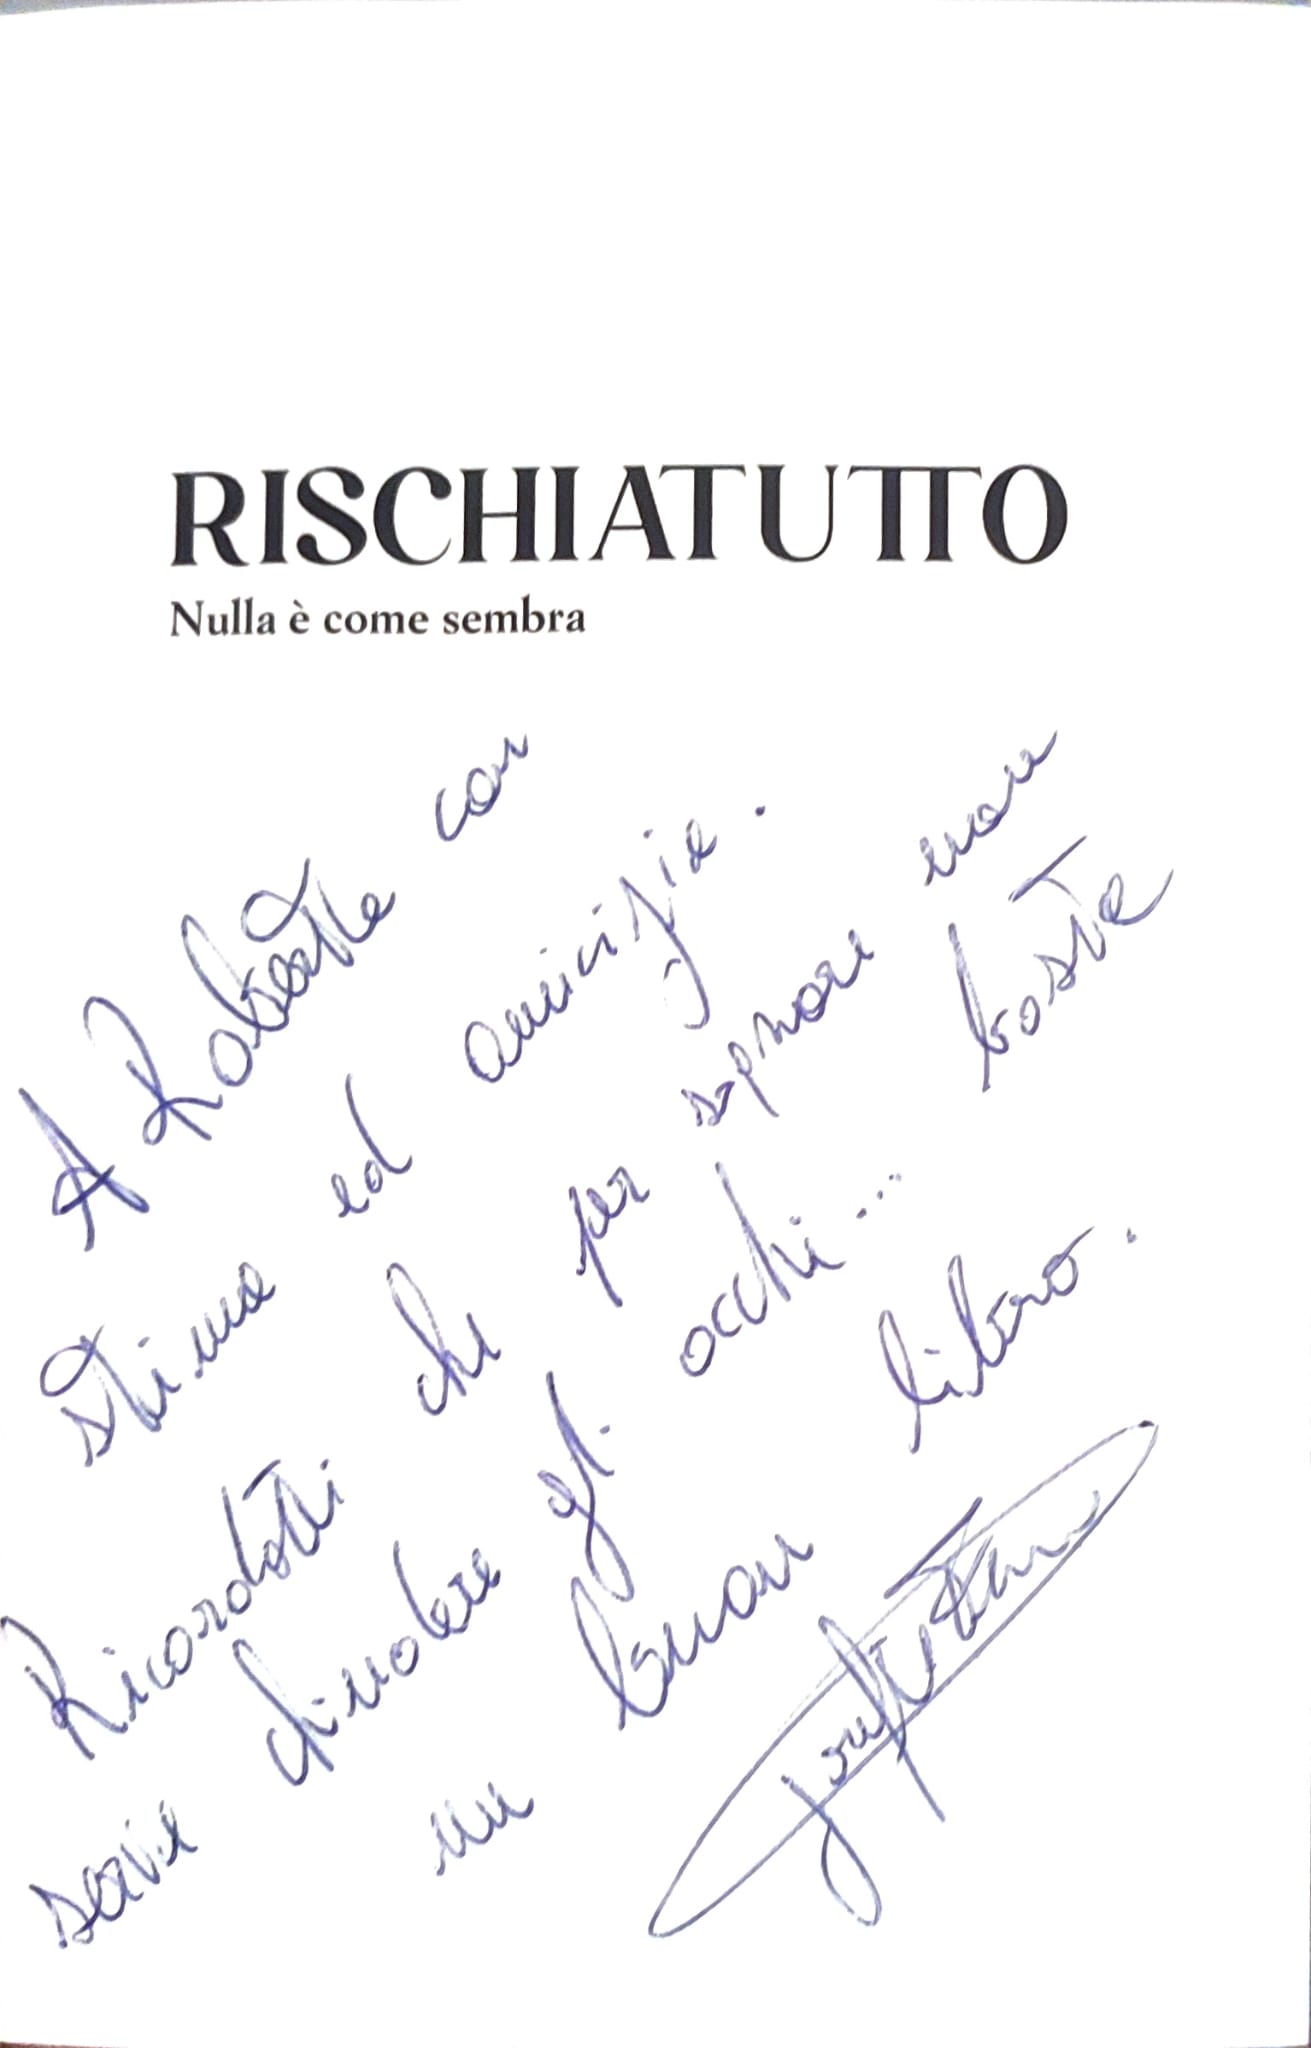 RISCHIATUTTO
Nulla è come sembra
A Roberta con
stima ed amicizia.
Ricordati che per sognare non
serve chiudere gli occhi... basta
un buon libro.